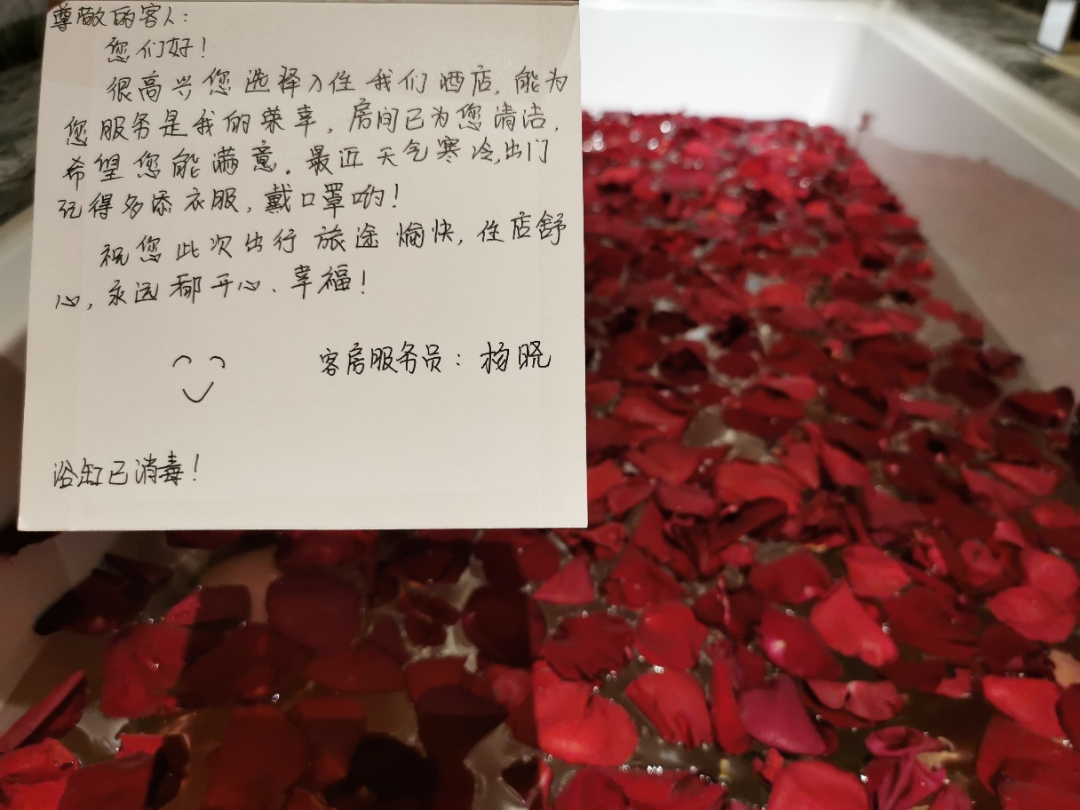 尊敬的客人：
您们好！
很高兴您选择入住我们酒店，能为
您服务是我的荣幸，房间已为您清洁，
希望您能满意。最近天气寒冷,出门
记得多添衣服，戴口罩哟！
祝您此次出行旅途愉快，住店舒
心，永远都开心、幸福！
客房服务员：杨晓
浴缸已消毒！